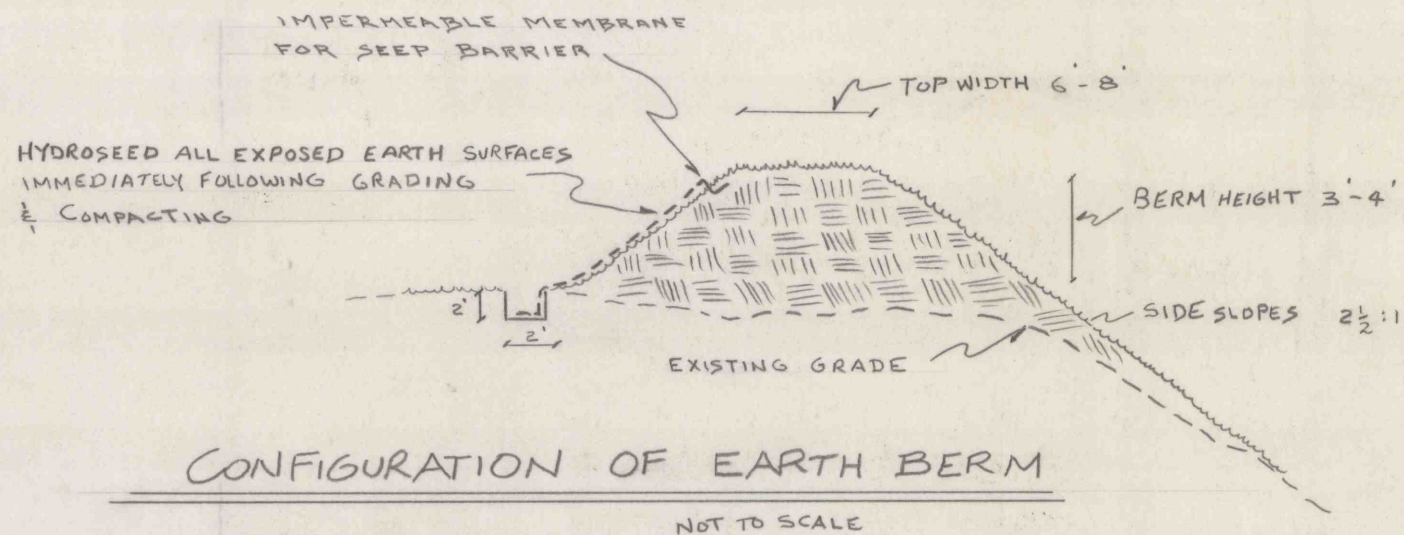 IMPERMEABLE MEMBRANE
FOR SEEP BARRIER
TOP WIDTH 6'-8'
HYDROSEED ALL EXPOSED EARTH SURFACES
IMMEDIATELY FOLLOWING GRADING
& COMPACTING
BERM HEIGHT 3'-4'
2'
2'
SIDE SLOPES 2½:1
EXISTING GRADE
CONFIGURATION OF EARTH BERM
NOT TO SCALE